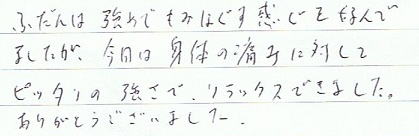 ふだんは強めでもみほぐす感じを好んで
ましたが、今日は身体の痛みに対して
ピッタリの強さで、リラックスできました。
ありがとうございましたー。